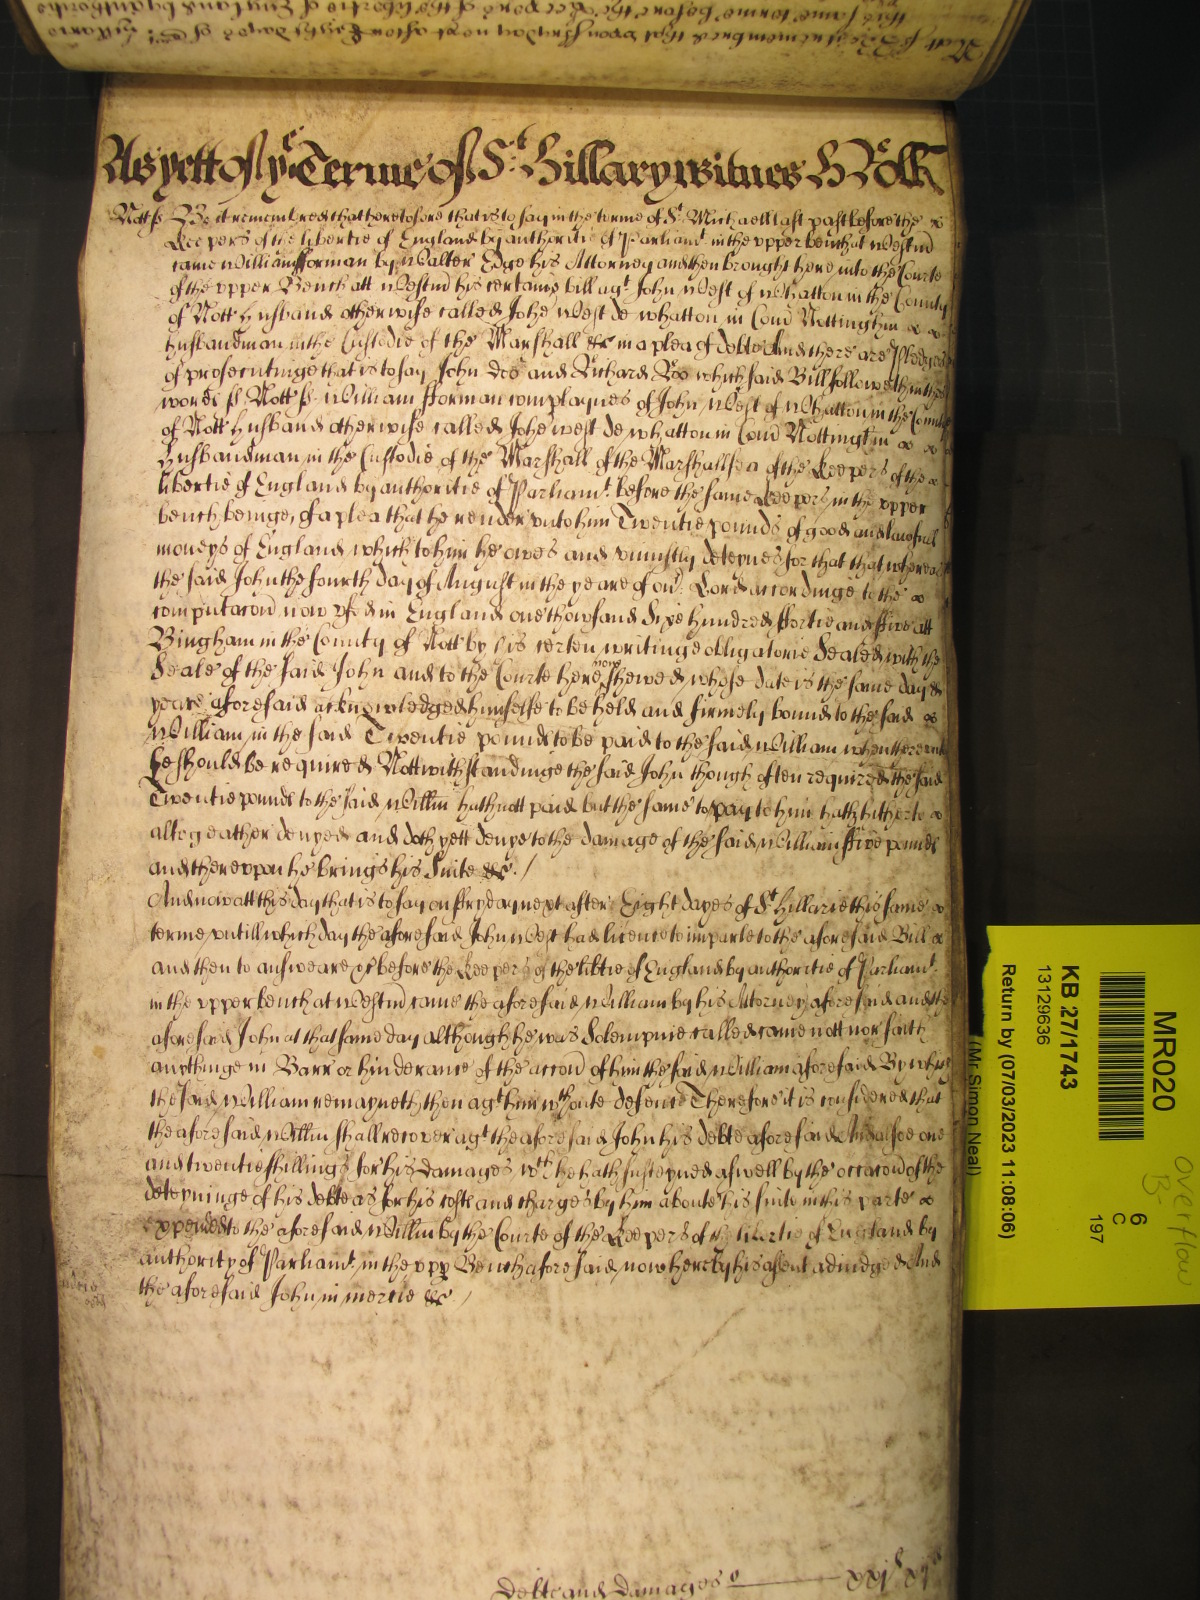 As yett of ye Terme of St. Hillary witnes H Rolle
Nott ss Be it remembred that heretofore that is to say in the terme of St. Michaell last past before the
Keepers of the libertie of England by authoritie of Parliamt. in the vpper bench at Westmr
came William fforman by Walter Edge his Attorney and then brought here into the Courte
of the vpper Bench att Westmr his certaine bill agt. John West of Whatton in the County
of Nott husband otherwise called Johe West de whatton in Com Nottinghm
husbandman in the Custodie of the Marshall &c in a plea of debte And there are Pledges
of prosecutinge that is to say John Doe and Richard Roe which said Bill followeth in these
words ss Nott ss William fforman complaynes of John West of Whatton in the County
of Nott husband otherwise called Johe west de whatton in Com Nottinghm
husbandman in the Custodie of the Marshall of the Marshallsea of the Keepers of the
libertie of England by authoritie of Parliamt. before the same Keepers in the vpper
bench beinge, of a plea that he render vnto him Twentie pounds of good and lawfull
moneys of England which to him he owes and vniustly deteynes for that that whereas
the said John the fourth day of August in the yeare of our Lord accordinge to the
computacon now vsed in England one thowsand Sixe hundred ffortie and ffive att
Bingham in the County of Nott by his certen writinge obligatorie Sealed with the
Seale of the said John and to the Courte here now shewed, whose date is the same day &
yeare aforesaid acknowledged himselfe to be held and firmely bound to the said
William in the said Twentie pounds to be paid to the said William when thereunto
he should be required Nottwithstandinge the said John though often required the said
Twentie pounds to the said Willm hath nott paid but the same to pay to him hath hitherto
altogeather denyed and doth yett denye to the damage of the said William ffive pounds
and therevpon he brings his Suite &c. /
And now att this day that is to say on ffryday next after Eight dayes of St Hillarie this same
terme vntill which day the aforesaid John West had licence to imparle to the aforesaid Bill
and then to answeare &c before the Keepers of the libtie of England by authoritie of Parliamt.
in the vpper bench at Westmr came the aforesaid William by his Attorney aforesaid and the
aforesaid John at that same day although he was Solempnie called came nott nor saith
anythinge in Barr or hinderance of the accon of him the said William aforesaid By which
the said William remayneth then agt him wthoute defence Therefore it is considered that
the aforesaid Willm shall recover agt the aforesaid John his debte aforesaid And alsoe one
and twentie shillings for his damages wch he hath susteyned aswell by the occacon of the
deteyninge of his debte as for his costs and charges by him aboute his suite in this parte
expended to the aforesaid Willm by the Courte of the Keepers of the libertie of England by
authority of Parliamt. in the vpp Bench aforesaid now here by his assent adiudged And
the aforesaid John in mercie &c. /
debte and damages
MR020
KB 27/1743
13129636
Return by (07/03/2023 11:08:06)
(Mr Simon Neal)
6
C
197
overflow
B-